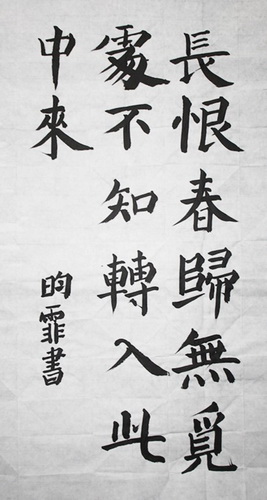 長恨春歸無覓
處不知轉入此
中來
昀霏書